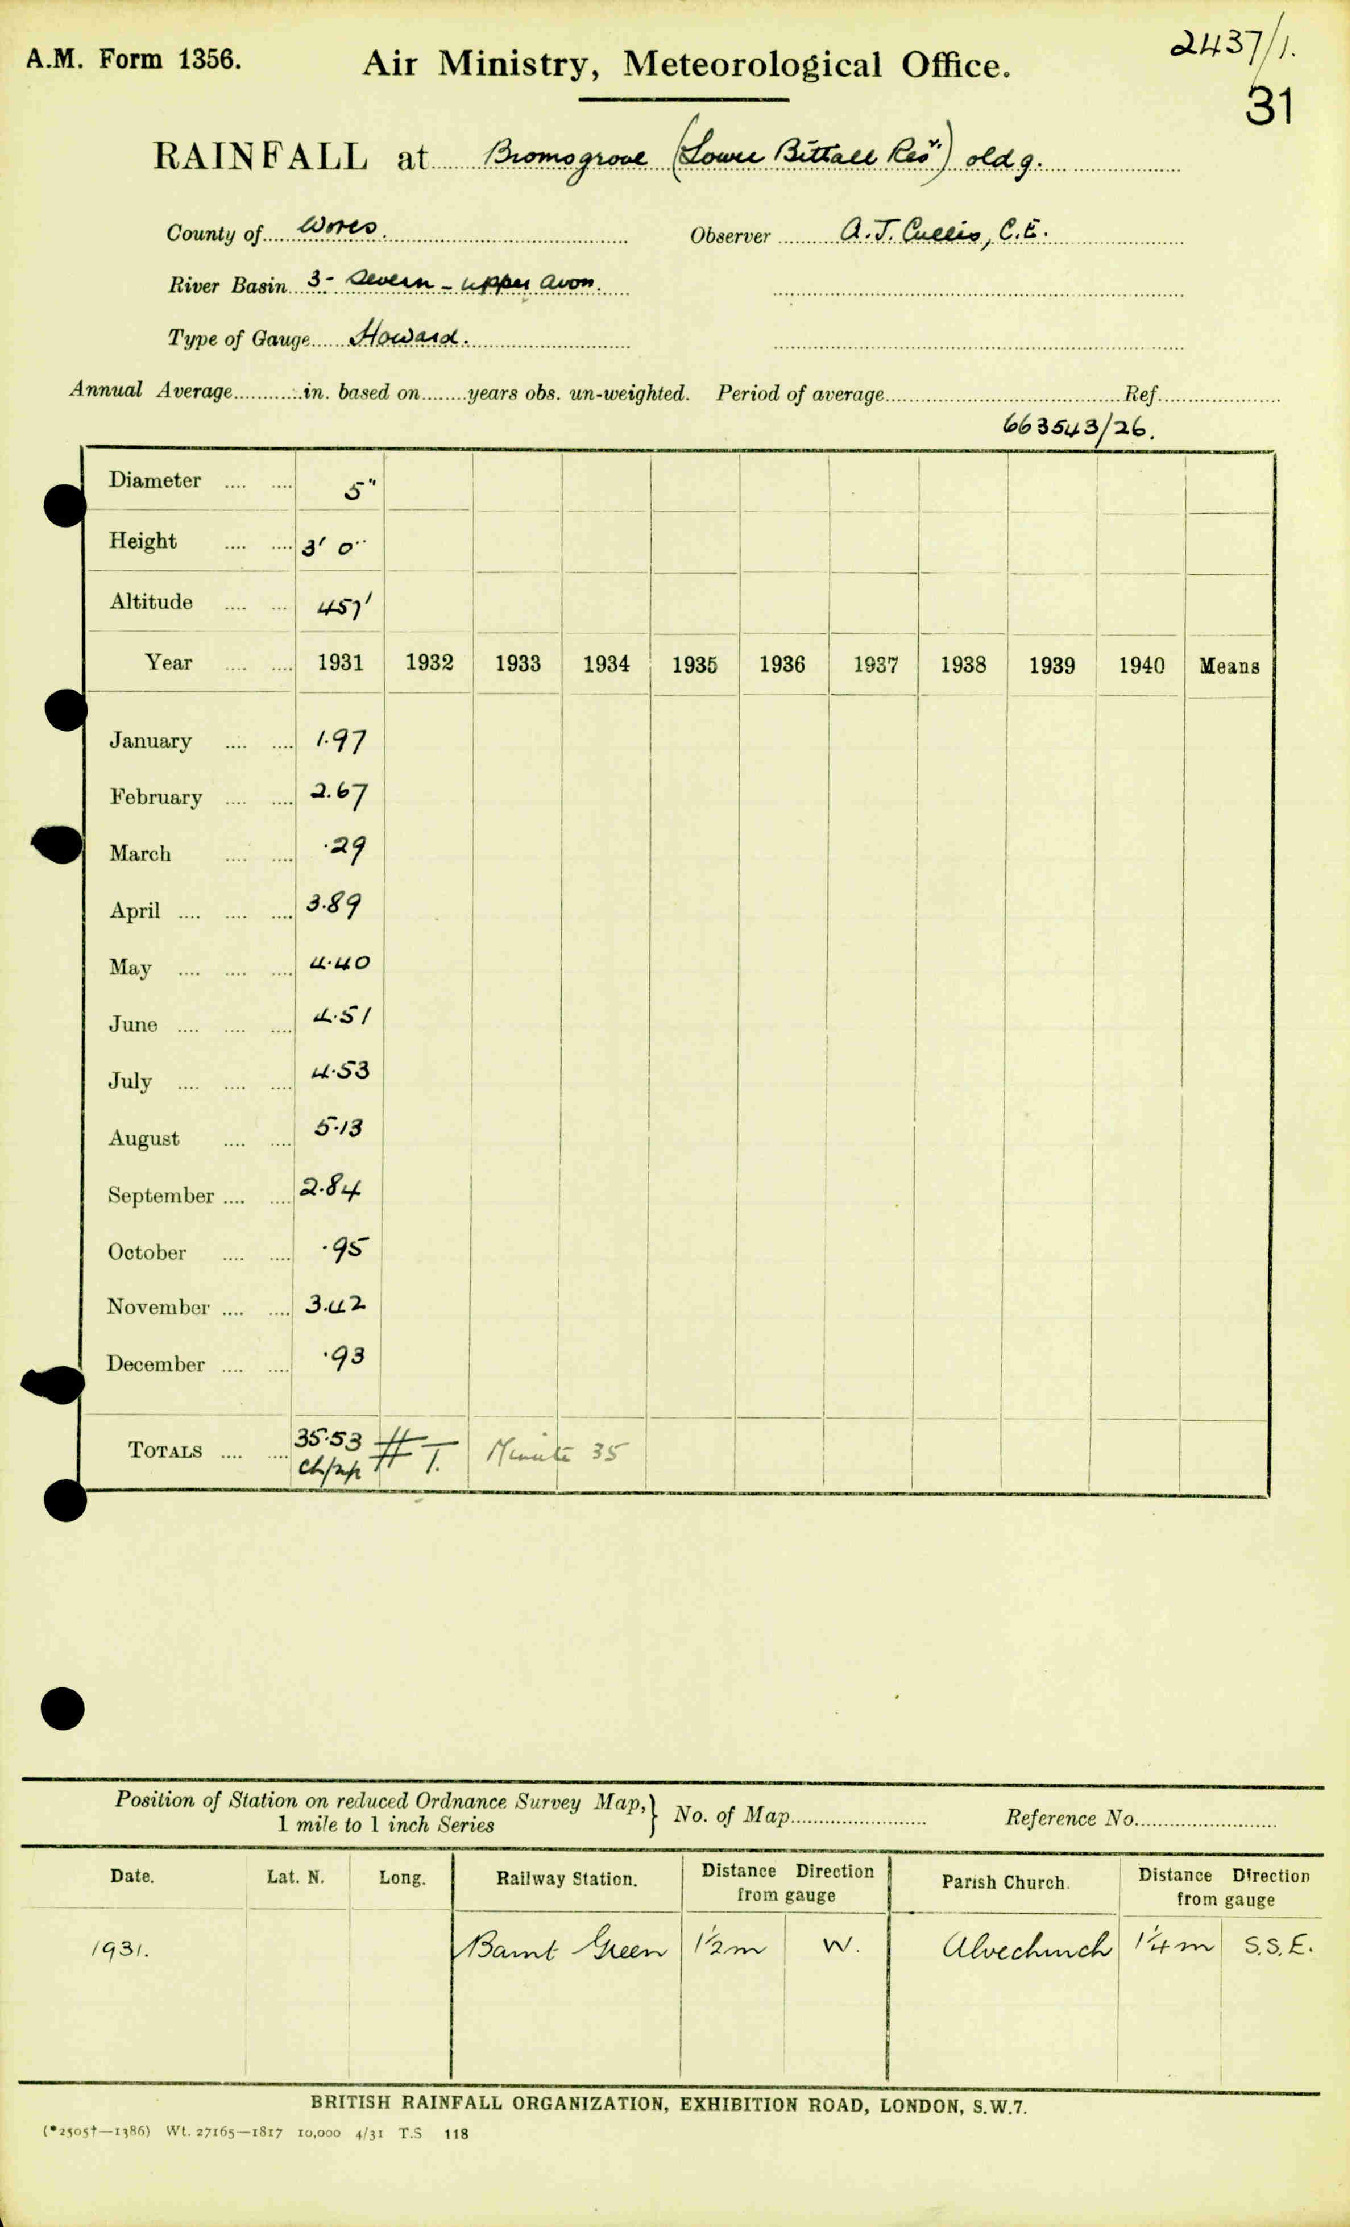 2437/1.
A.M. Form 1356. Air Ministry, Meteorological Office.
31
RAINFALL at Bromsgrove (Lower Bittall Resr) old g.
County of Worcs. Observer A. J. Cullis, C.E.
River Basin 3 - Severn - upper Avon.
Type of Gauge Howard.
Annual Average in. based on years obs. un-weighted. Period of average Ref.
663543/26.
Diameter 5"
Height 3' 0"
Altitude 457'
Year 1931 1932 1933 1934 1935 1936 1937 1938 1939 1940 Means
January 1.97
February 2.67
March .29
April 3.89
May 4.40
June 4.51
July 4.53
August 5.13
September 2.84
October .95
November 3.42
December .93
TOTALS 35.53 # T. Minute 35
Position of Station on reduced Ordnance Survey Map, } No. of Map Reference No.
1 mile to 1 inch Series
Date. Lat. N. Long. Railway Station. Distance Direction from gauge Parish Church. Distance Direction from gauge
1931. Barnt Green 1½m W. Alvechurch 1¼m S.S.E.
BRITISH RAINFALL ORGANIZATION, EXHIBITION ROAD, LONDON, S.W.7.
(*2505†—1386) Wt. 27165—1817 10,000 4/31 T.S 118